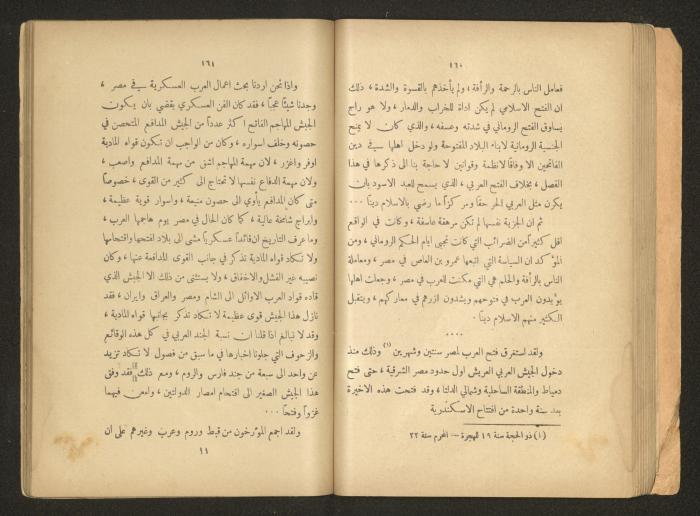 ١٦٠
فعامل الناس بالرحمة والرأفة ، ولم يأخذهم بالقسوة والشدة ، ذلك
ان الفتح الاسلامي لم يكن اداة للخراب والدمار ، ولا هو راج
يساوق الفتح الروماني في شدته وعسفه ، والذي كان لا يمنح
الجنسية الرومانية لابناء البلاد المفتوحة ولو دخل اهلها في دين
الفاتحين الا وفاقًا لانظمة وقوانين لا حاجة بنا الى ذكرها في هذا
الفصل ، بخلاف الفتح العربي ، الذي يسمح للعبد الاسود بان
يكون مثل العربي الحر حقًا ومركزاً ما رضي بالاسلام دينًا ...
ثم ان الجزية نفسها لم تكن مرهقة عاسفة ، وكانت في الواقع
اقل كثيراً من الضرائب التي كانت تجبى ايام الحكم الروماني ، ومن
المؤكد ان السياسة التي اتبعها عمرو بن العاص في مصر ، ومعاملة
الناس بالرأفة والحلم هي التي مكنت للعرب في مصر ، وجعلت اهلها
يؤيدون العرب في فتوحهم ويشدون ازرهم في معاركهم ، ويتقبل
الكثير منهم الاسلام دينًا .
....
ولقد استغرق فتح العرب لمصر سنتين وشهرين (١) وذلك منذ
دخول الجيش العربي العريش اول حدود مصر الشرقية ، حتى فتح
دمياط والمنطقة الساحلية وشمالي الدلتا ، وقد فتحت هذه الاخيرة
بعد سنة واحدة من افتتاح الاسكندرية
(١) ذو الحجة سنة ١٩ للهجرة – المحرم سنة ٢٢
١٦١
واذا نحن اردنا بحث اعمال العرب العسكرية في مصر ،
وجدنا شيئًا عجبًا ، فقد كان الفن العسكري يقضي بان يكون
الجيش المهاجم الفاتح اكثر عدداً من الجيش المدافع المتحصن في
حصونه وخلف اسواره ، وكان من الواجب ان تكون قواه المادية
اوفر واغزر ، لان مهمة المهاجم اشق من مهمة المدافع واصعب ،
ولان مهمة الدفاع نفسها لا تحتاج الى كثير من القوى ، خصوصًا
متى كان المدافع يأوي الى حصون منيعة ، واسوار قوية عظيمة ،
وابراج شامخة عالية ، كما كان الحال في مصر يوم هاجمها العرب ،
وما عرف التاريخ ان قائداً عسكريًا مشى الى بلاد افتتحها واقتحامها
ولا تكاد قواه المادية تذكر في جانب القوى المدافعة عنها ، وكان
نصيبه غير الفشل والاخفاق ، ولا يستثنى من ذلك الا الجيش الذي
قاده قواد العرب الاوائل الى الشام ومصر والعراق وايران ، فقد
نازل هذا الجيش قوى عظيمة لا تكاد تذكر بجانبها قواه المادية ،
وقد لا نبالغ اذا قلنا ان نسبة الجند العربي في كل هذه الوقائع
والزحوف التي جلونا اخبارها في ما سبق من فصول لا تكاد تزيد
عن واحد الى سبعة من جند فارس والروم ، ومع ذلك فقد وفق
هذا الجيش الصغير الى اقتحام امصار الدولتين ، وامعن فيهما
غزواً وفتحًا ...
ولقد اجمع المؤرخون من قبط وروم وعرب وغيرهم على ان
١١